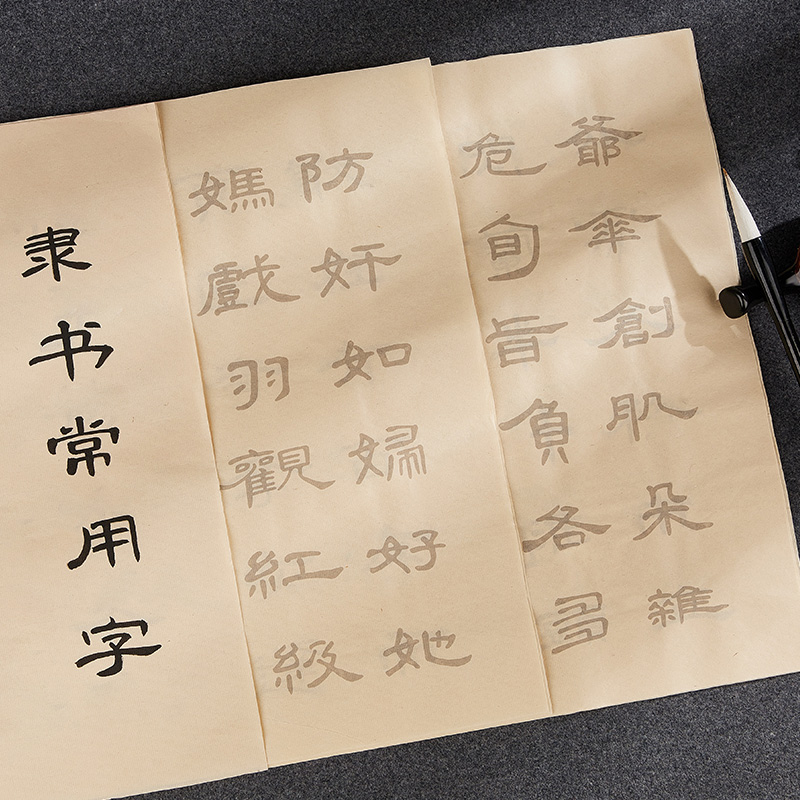 隶书常用字
爺傘創肌朵雜
危旬旨負各多
防奸如婦好她
媽戲羽觀紅級